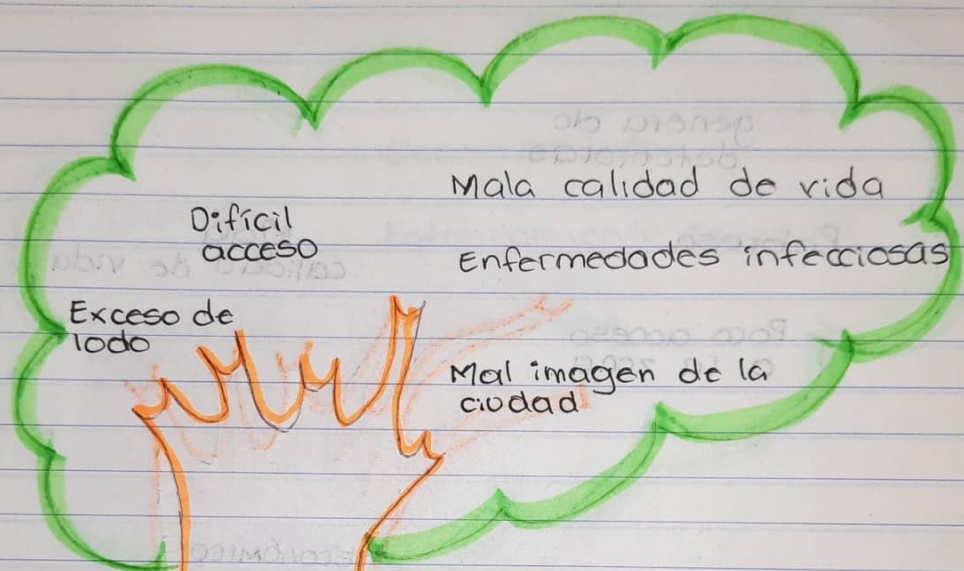 Mala calidad de vida
Difícil
acceso
Enfermedades infecciosas
Exceso de
lodo
Mal imagen de la
ciudad